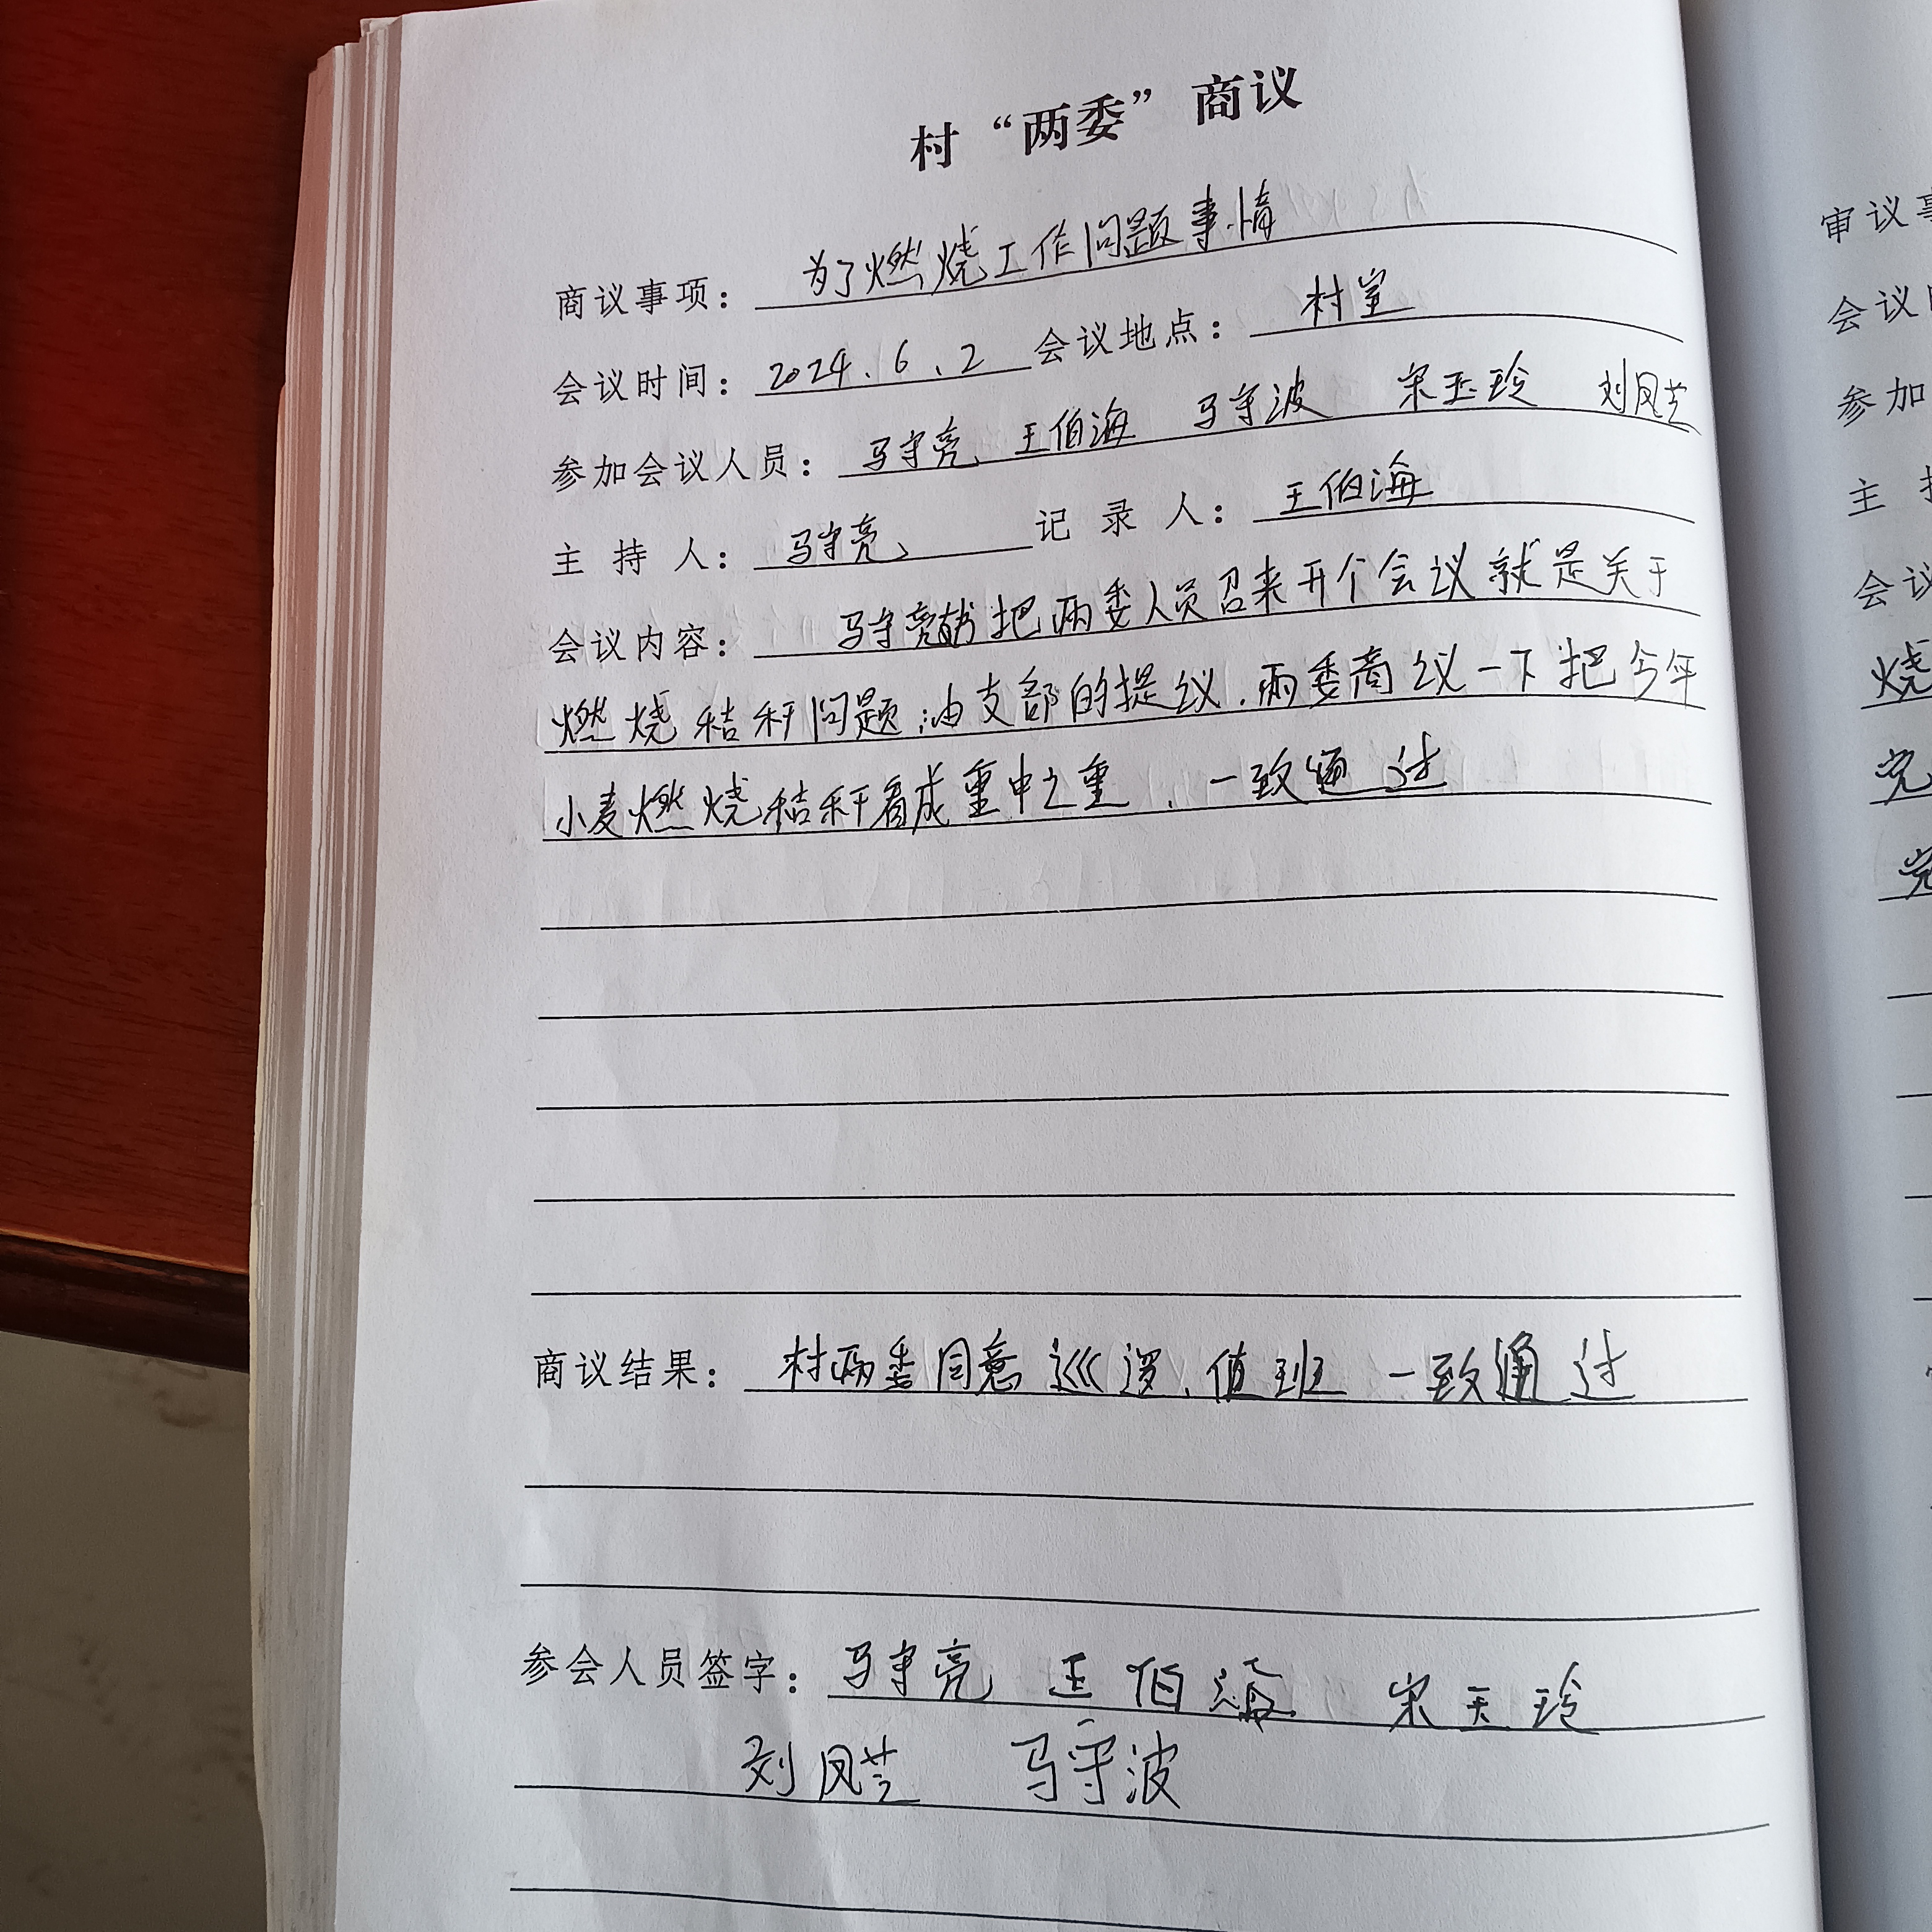 村“两委”商议
商议事项：为了燃烧工作问题事情
会议时间：2024.6.2 会议地点：村室
参加会议人员：马守亮 王伯海 马守波 宋玉玲 刘凤芝
主持人：马守亮 记录人：王伯海
会议内容：马守亮 把两委人员召来开个会议就是关于
燃烧秸秆问题，由支部的提议，两委商议一下把今年
小麦燃烧秸秆看成重中之重，一致通过
商议结果：村两委同意巡逻、值班 一致通过
参会人员签字：马守亮 王伯海 宋玉玲
刘凤芝 马守波
审议事
会议
参加
主
会议
烧
完